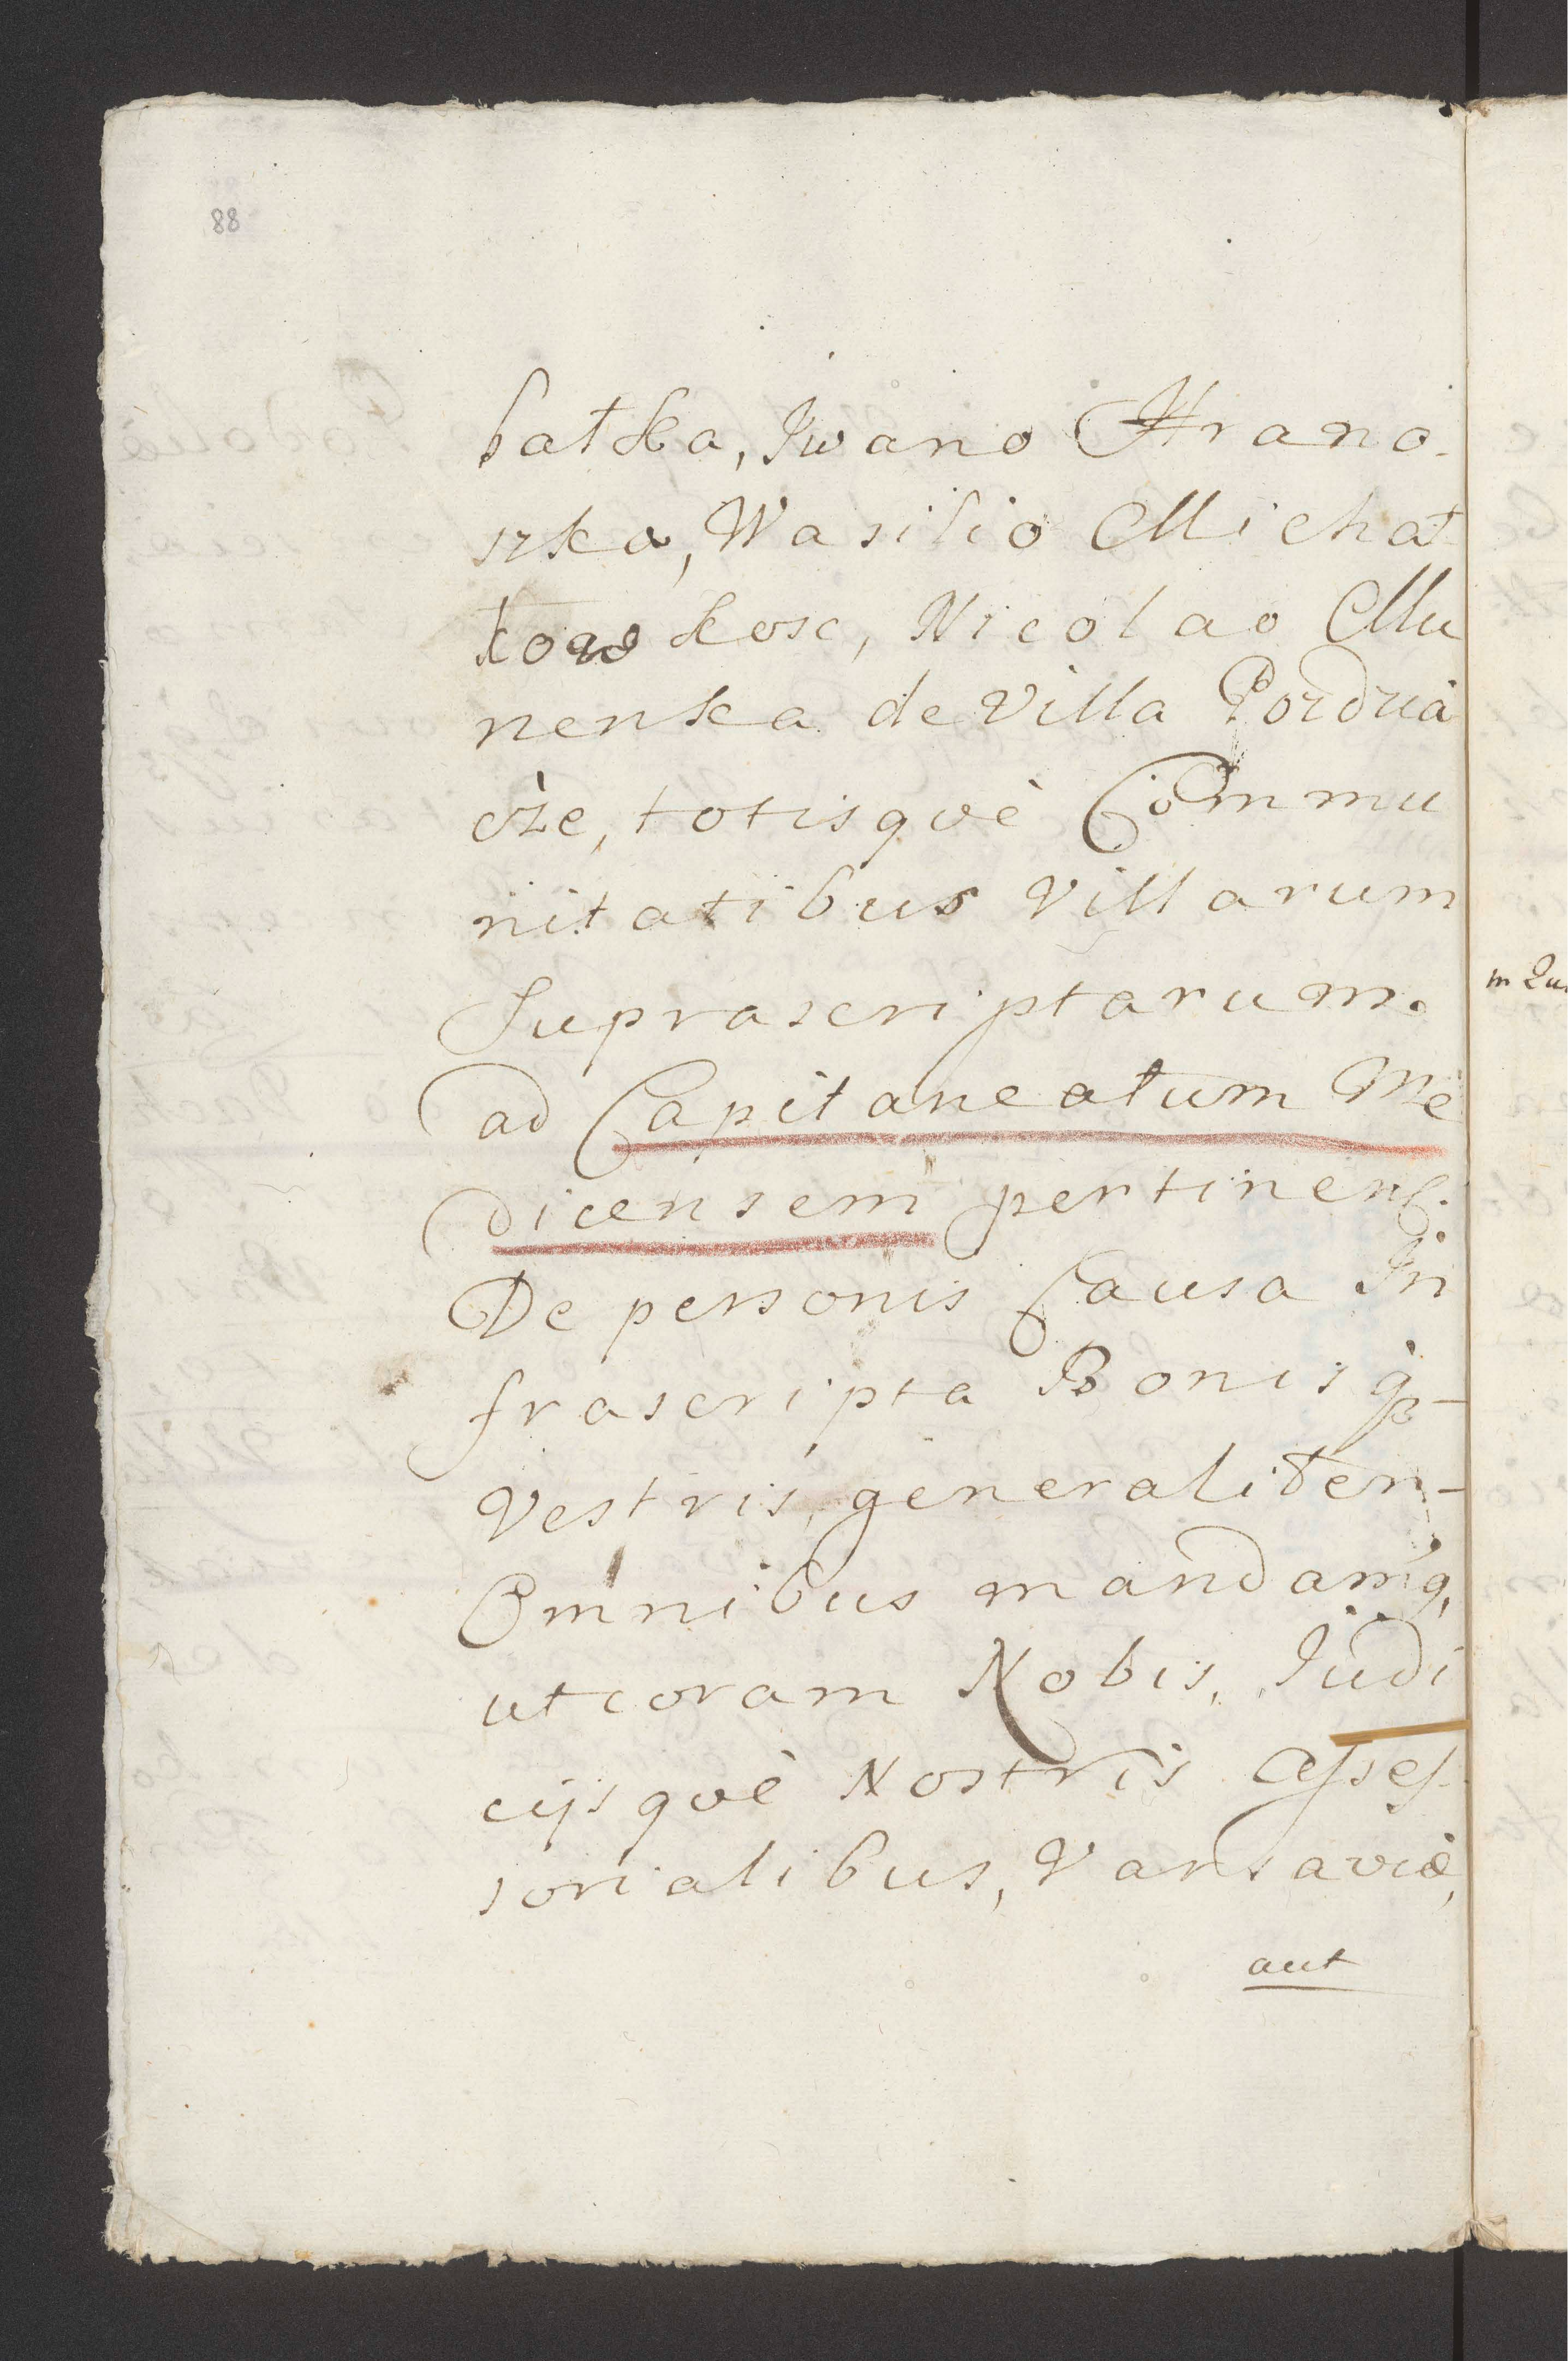 88
batka, Iwano Hrano-
szka, Wasilio Michał
kowskosc, Nicolao Mu
nenka de Villa Pozdzia
cze, totisqvè Commu
nitatibus Villarum
Suprascriptarum.
ad Capitaneatum Me
dicensem pertinent:
De personis Causa In
frascripta Bonisq3-
Vestris, generaliter-
Omnibus mandamq,
ut coram Nobis, Judi
cijsqvè Nostris Asses-
sorialibus, Varsaviæ,
aut